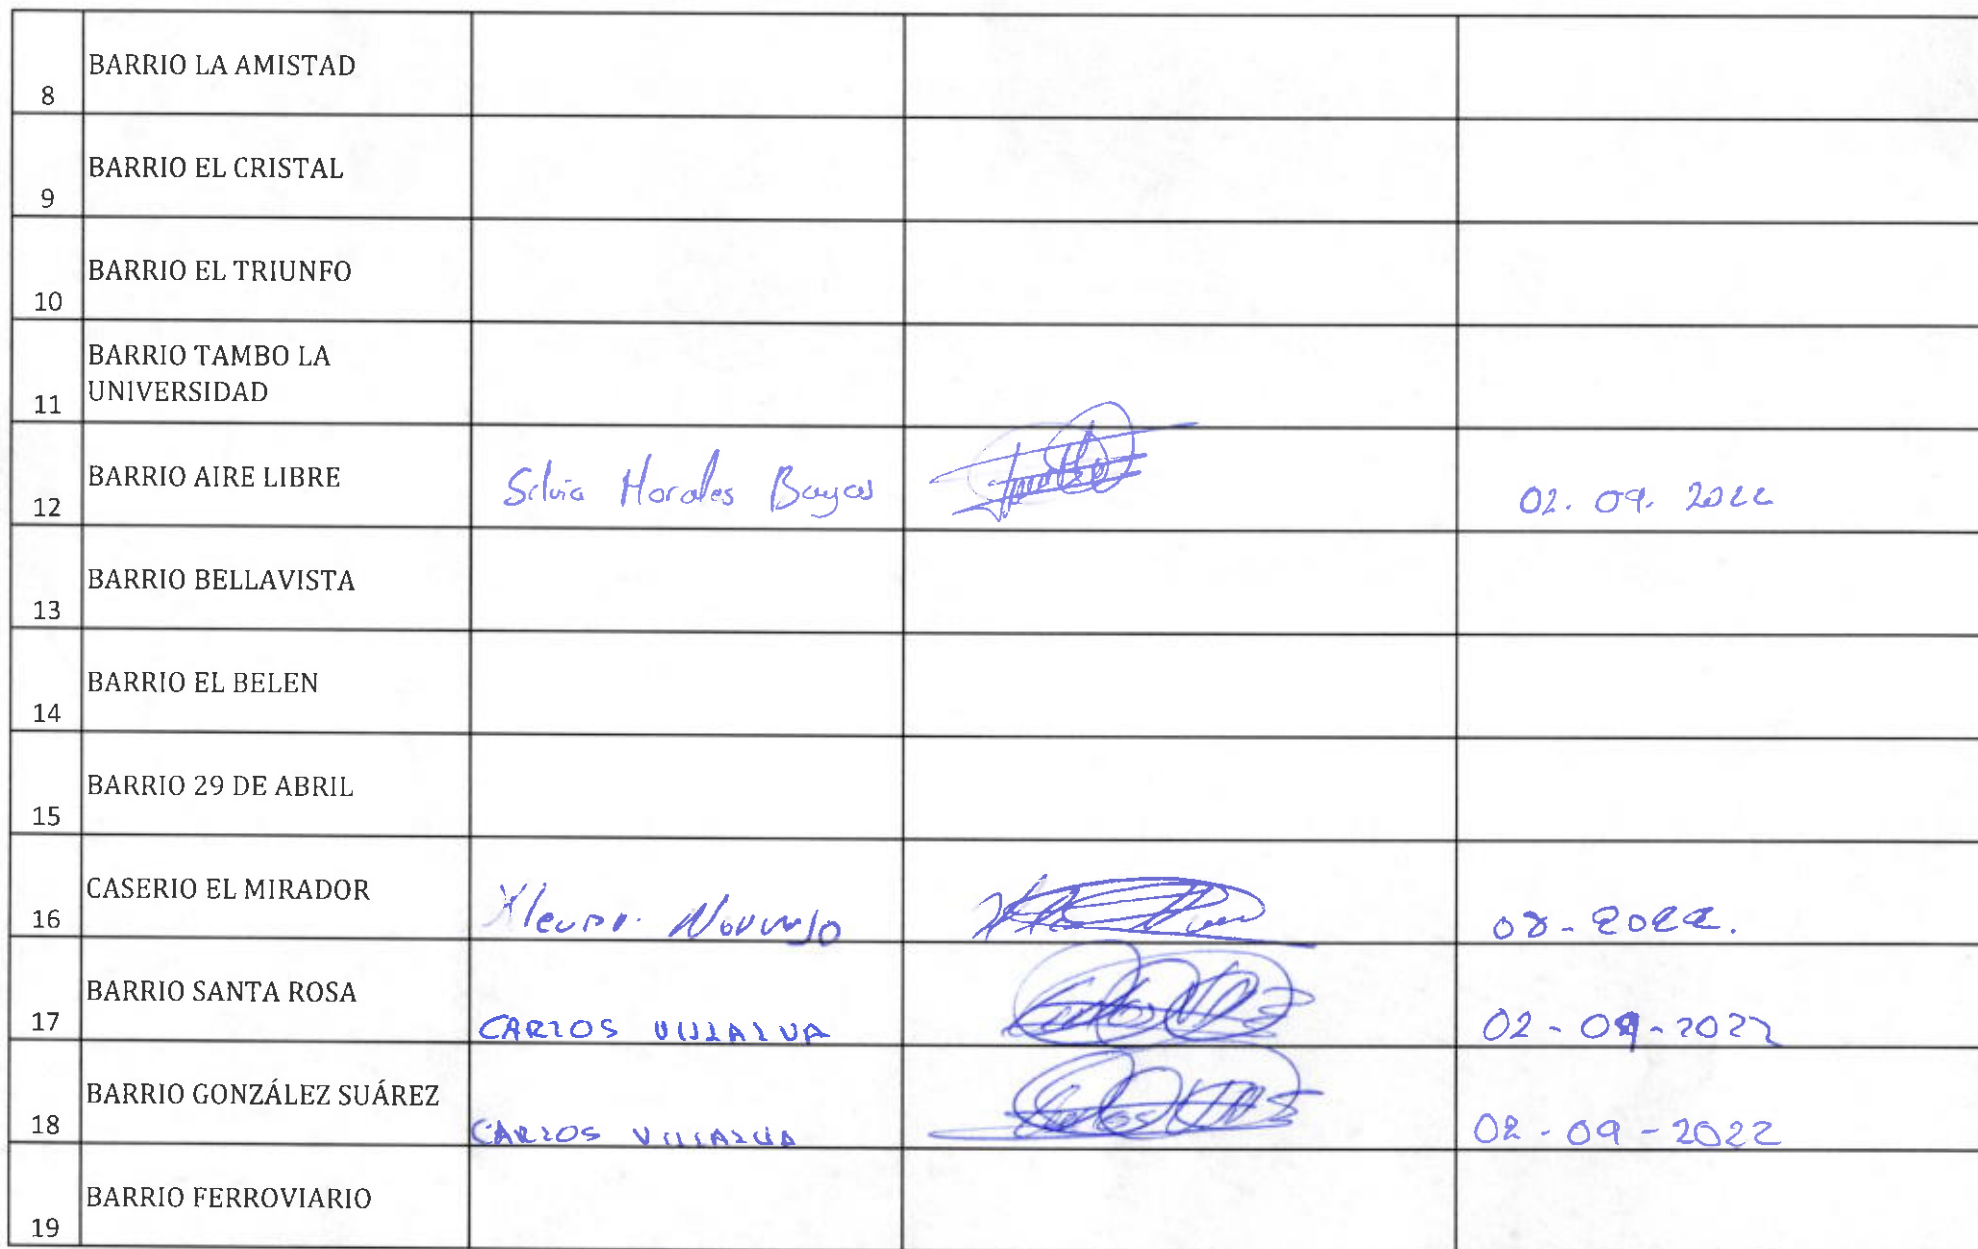 BARRIO LA AMISTAD
8
BARRIO EL CRISTAL
9
BARRIO EL TRIUNFO
10
BARRIO TAMBO LA
UNIVERSIDAD
11
BARRIO AIRE LIBRE
12
Silvia Morales Bayas
02. 09. 2022
BARRIO BELLAVISTA
13
BARRIO EL BELEN
14
BARRIO 29 DE ABRIL
15
CASERIO EL MIRADOR
16
08-2022.
BARRIO SANTA ROSA
17
CARLOS VILLALVA
02-09-2022
BARRIO GONZÁLEZ SUÁREZ
18
CARLOS VILLALVA
02-09-2022
BARRIO FERROVIARIO
19